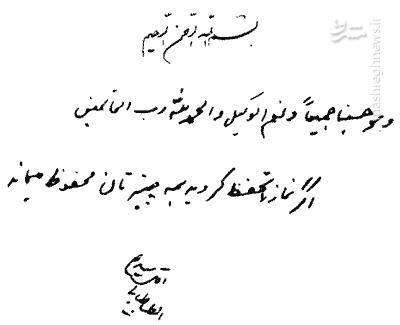 بسم الله الرحمن الرحیم
و هو حسبنا جمیعاً و نعم الوکیل و الحمد لله رب العالمین
اگر نماز را تحفظ کردید همه چیزتان محفوظ میماند
الطباطبایی
مشرق
mashreghnews.ir